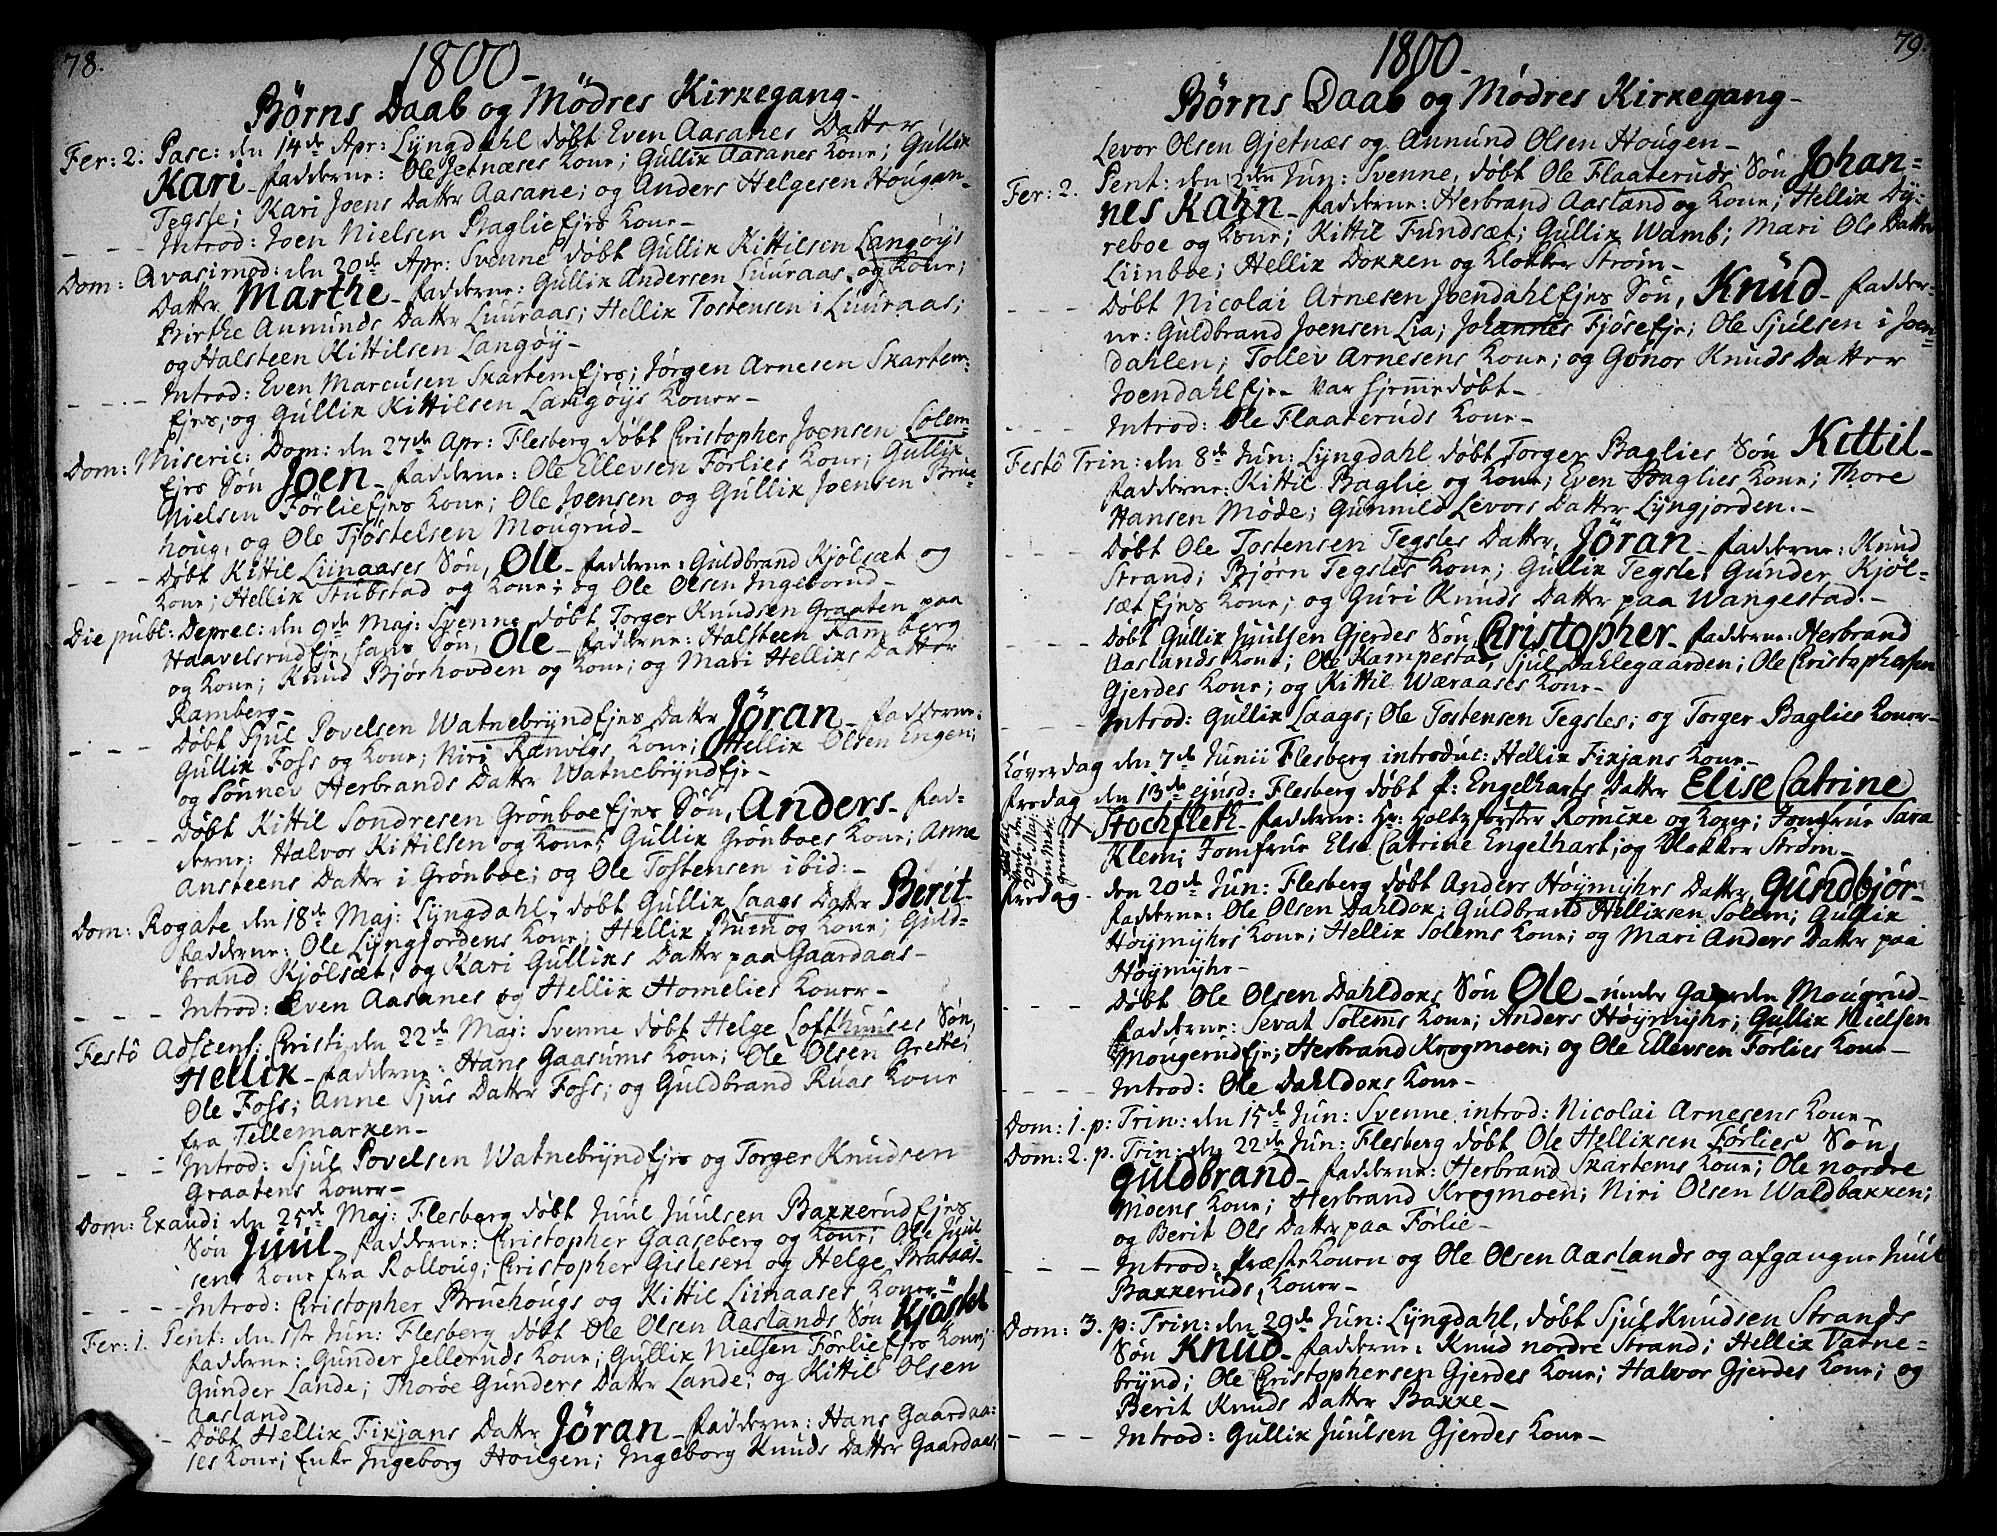 78.
1800-
Børns Daab og Mødres Kirkegang-
Fer: 2. Pasc: den 14de Apr: Lyngdahl døbt Even Aasanes Datter
Kari- Fadderne: Ole Jetnæses Kone; Gullik Aasanes Kone; Gullik
Tegsle; Kari Joens Datter Aasane; og Anders Helgesen Hougan-
- - Introd: Joen Nielsen Baglie Ejes Kone-
Dom: Qvasimod: den 20de Apr: Svenne døbt Gullik Kittilsen Langøys
Datter Marthe- Fadderne: Gullik Andersen Luuraas og Kone;
Birthe Anmunds Datter Luuraas; Hellik Tostensen i Luuraas;
og Halsteen Kittilsen Langøy-
- - - Introd: Even Marcusen Skartem Ejes; Jørgen Arnesen Skartem-
Ejes, og Gullik Kittilsen Langøys Koner-
Dom: Miseric: Dom: den 27de Apr: Flesberg døbt Christopher Joensen Solem-
Ejes Søn Joen- Fadderne: Ole Ellevsen Førlies Kone; Gullik
Nielsen Førlie Ejes Kone; Ole Joensen og Gullik Joensen Brue-
houg, og Ole Tjøstelsen Mougrud-
- - - Døbt Kittil Liinaases Søn, Ole- Fadderne: Guldbrand Kjølsæt og
Kone; Hellik Stubstad og Kone; og Ole Olsen Ingeborrud-
Die publ: Deprec: den 9de Maj: Svenne døbt Torger Knudsen Graaten paa
Haavelsrud Eje, hans Søn, Ole- Fadderne: Halsteen Ramberg
og Kone; Knud Bjørhovden og Kone; og Mari Helliks Datter
Ramberg-
- - - Døbt Sjul Povelsen Watnebrynd Ejes Datter Jöran- Fadderne:
Gullik Foss og Kone; Niri Ranvigs Kone; Hellik Olsen Engen;
og Sønnev Herbrands Datter Watnebrynd Eje-
- - - Døbt Kittil Sondresen Grønboe Ejes Søn, Anders- Fad-
derne: Halvor Kittilsen og Kone; Gullik Grønboes Kone; Anne
Ansteens Datter i Grønboe; og Ole Tostensen ibid:-
Dom: Rogate den 18de Maj: Lyngdahl, døbt Gullik Laags Datter Berit-
Fadderne: Ole Lyngjordens Kone; Hellik Buin og Kone; Guld-
brand Kjølsæt, og Kari Gulliks Datter paa Gaardaas-
- - - Introd: Even Aasanes og Hellik Homelies Koner-
Festô Adscens: Christi den 22de Maj: Svenne døbt Helge Lofthuuses Søn,
Hellik- Fadderne: Hans Gaasums Kone; Ole Olsen Grette;
Ole Foss; Anne Sjuls Datter Foss; og Guldbrand Ruas Kone
fra Tellemarken-
- - - Introd: Sjul Povelsen Watnebrynd Ejes og Torger Knudsen
Graatens Koner-
Dom: Exaudi den 25de Maj: Flesberg døbt Juul Juulsen Bakkerud Ejes
Søn Juul- Fadderne: Christopher Gaaseberg og Kone; Ole Juul-
sens Kone fra Rolloug; Christopher Gislesen og Helge Brataas-
- - - Introd: Christopher Bruehougs og Kittil Liinaases Koner-
Fer: 1. Pent: den 1ste Jun: Flesberg døbt Ole Olsen Aaslands Søn Kjöstel
Fadderne: Gunder Jelleruds Kone; Gullik Nielsen Førlie Ejes Kone;
Gunder Lande; Thorøe Gunders Datter Lande; og Kittil Olsen
Aasland
- Døbt Hellik Fixjans Datter Jöran- Fadderne: Hans Gaardaa-
ses Kone; Enke Ingeborg Hougen; Ingeborg Knuds Datter Gaardaas;
79.
1800-
Børns Daab og Mødres Kirkegang-
Levor Olsen Gjetnæs og Anmund Olsen Hougen-
Fer: 2. Pent: den 2den Jun: Svenne, døbt Ole Flaateruds Søn Johan-
nes Kahn- Fadderne: Herbrand Aasland og Kone; Hellik Dy-
reboe og Kone; Kittil Fundsæt; Gullik Wamb; Mari Ols Datter
Liinboe; Hellik Dokken og Klokker Strøm-
- - - Døbt Nicolai Arnesen Joendahl Ejes Søn, Knud- Fadder-
ne: Guldbrand Joensen Lia; Johannes Fjøseje; Ole Sjulsen i Joen-
dahlen; Tollev Arnesens Kone; og Gunor Knuds Datter
Joendahl Eje- Var hjemmedøbt-
- - - Introd: Ole Flaateruds Kone-
Festô Trin: den 8de Jun: Lyngdahl døbt Torger Baglies Søn Kittil-
Fadderne: Kittil Baglie og Kone; Even Baglies Kone; Thore
Hansen Møde; Gunnild Levors Datter Lyngjorden.-
- - - Døbt Ole Tostensen Tegsles Datter, Jöran- Fadderne: Knud
Strand; Bjørn Tegsles Kone; Gullik Tegsle; Gunder Kjøl-
sæt Ejes Kone; og Guri Knuds Datter paa Wangestad.-
- - - Døbt Gullik Juulsen Gjerdes Søn Christopher- Fadderne: Herbrand
Aaslands Kone; Ole Kampestad; Sjul Dahlegaarden; Ole Christophersen
Gjerdes Kone; og Kittil Wæraases Kone-
- - - Introd: Gullik Laags; Ole Tostensen Tegsles; og Torger Baglies Koner-
Løverdag den 7de Junii Flesberg introduc: Hellik Fixjans Kone-
Fredag den 13de ejusd: Flesberg døbt H: Engelharts Datter Elise Catrine
Stochfleth- Fadderne: Hr: Holtzførster Rømcke og Kone; Jomfrue Sara
Klem; Jomfrue Else Catrine Engelhart, og Klokker Strøm-
29de Maj
Fredag- den 20de Jun: Flesberg døbt Anders Høymyhrs Datter Gundbjør-
Fadderne: Ole Olsen Dahldok; Guldbrand Helliksen Solem; Gullik
Høymyhrs Kone; Hellik Solems Kone; og Mari Anders Datter paa
Høymyhr-
- - - Døbt Ole Olsen Dahldoks Søn Ole- under Gaarden Mougrud-
Fadderne: Sevat Solems Kone; Anders Høymyhr; Gullik Nielsen
Mougerud Eje; Herbrand Krogmoen; og Ole Ellevsen Førlies Kone-
- - - Introd: Ole Dahldoks Kone-
Dom: 1. p: Trin: den 15de Jun: Svenne introd: Nicolai Arnesens Kone-
Dom: 2. p. Trin: den 22de Jun: Flesberg døbt Ole Helliksen Førlies Søn
Guldbrand- Fadderne: Herbrand Skartems Kone; Ole nordre
Moens Kone; Herbrand Krogmoen; Niri Olsen Waldbakken;
og Berit Ols Datter paa Førlie-
- - - Introd: Præste Konen og Ole Olsen Aaslands og afgangne Juul
Bakkeruds, Koner-
Dom: 3. p: Trin: den 29de Jun: Lyngdahl, døbt Sjul Knudsen Strands
Søn Knud- Fadderne: Knud nordre Strand; Hellik Vatne-
brynd; Ole Christophersen Gjerdes Kone; Halvor Gjerdes Kone; og
Berit Knuds Datter Bakke-
- - - Introd: Gullik Juulsen Gjerdes Kone-